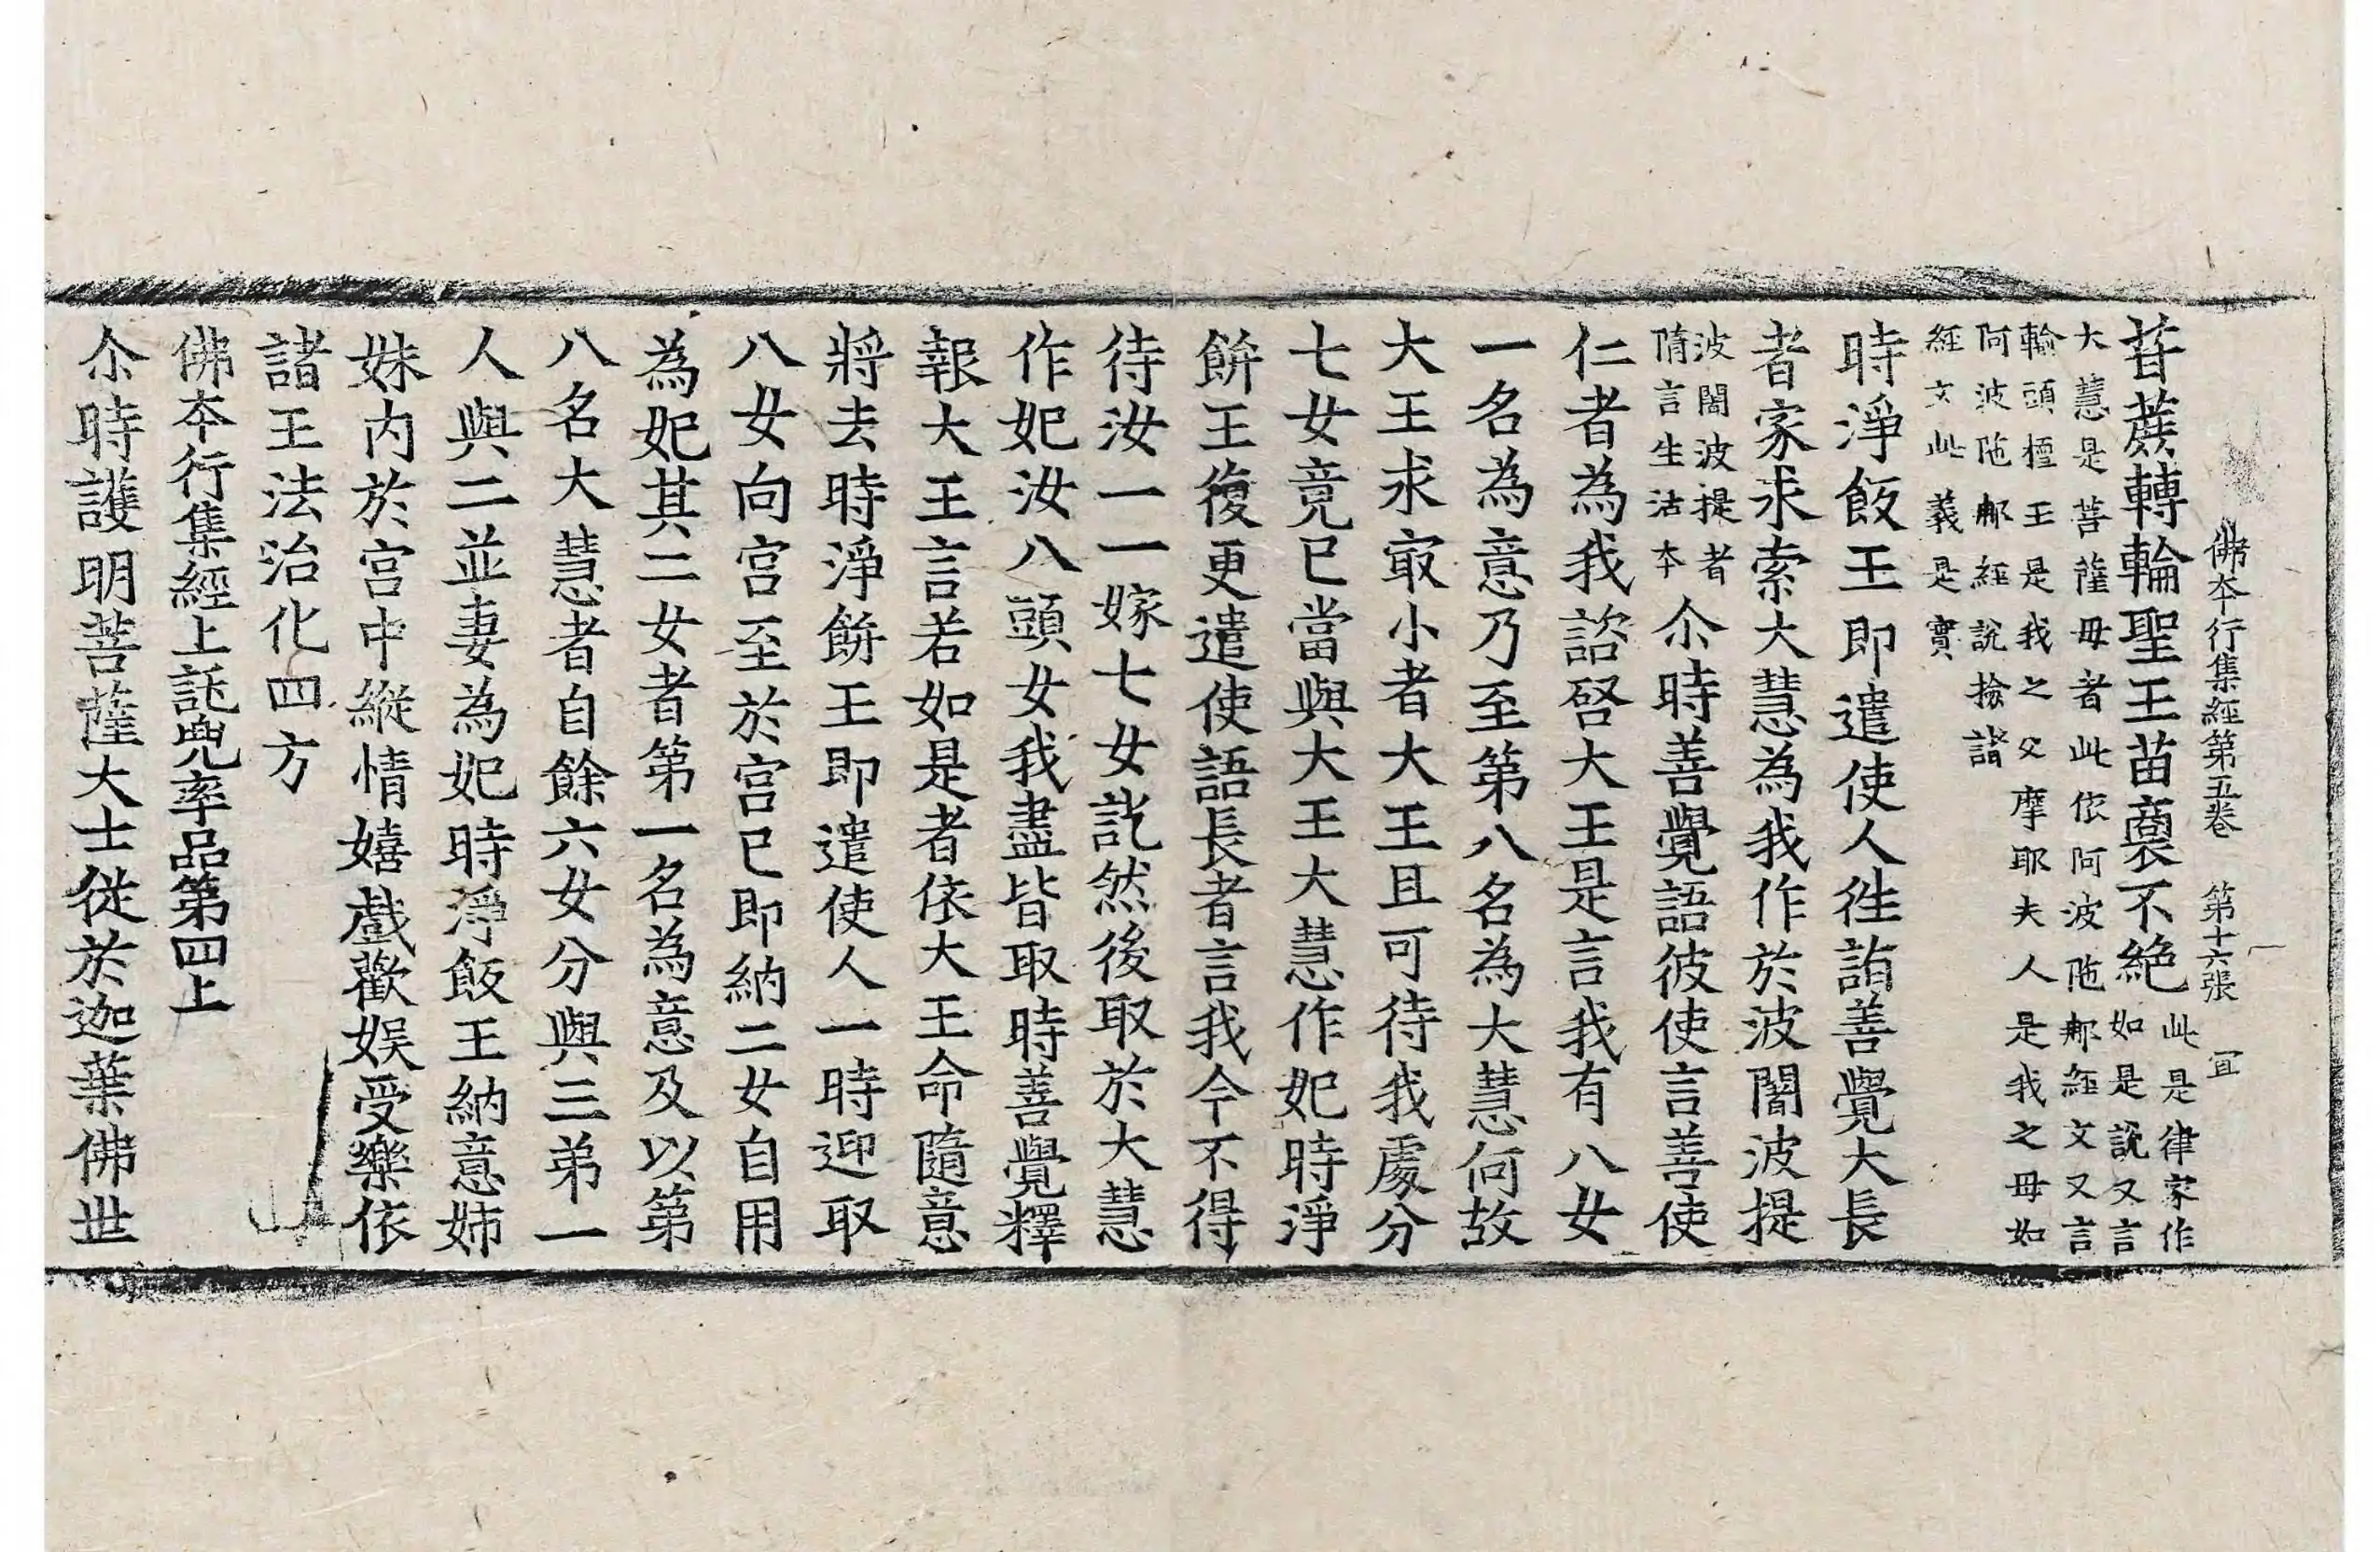 佛夲行集經第五卷　第十六張　冝
甘蔗轉輪聖王苗裔不絶此是律家作
如是說又言
大慧是菩薩毋者此依阿波陁那經文又言
輸頭檀王是我之父摩耶夫人是我之毋如
阿波陁那經說撿諸
經文此義是實
時淨飯王即遣使人往詣善覺大長
者家求索大慧為我作於波闍波提
波闍波提者
隋言生活夲
尒時善覺語彼使言善使
仁者為我諮啓大王是言我有八女
一名為意乃至第八名為大慧何故
大王求㝡小者大王且可待我處分
七女竟已當與大王大慧作妃時淨
餅王復更遣使語長者言我今不得
待汝一一嫁七女訖然後取於大慧
作妃汝八頭女我盡皆取時善覺釋
報大王言若如是者依大王命隨意
將去時淨餅王即遣使人一時迎取
八女向宮至於宮已即納二女自用
為妃其二女者第一名為意及以第
八名大慧者自餘六女分與三弟一
人與二並妻為妃時淨飯王納意姊
妹内於宮中縱情嬉戲歡娛受樂依
諸王法治化四方
佛夲行集經上託兜率品第四上
尒時護明菩薩大士從於迦葉佛世